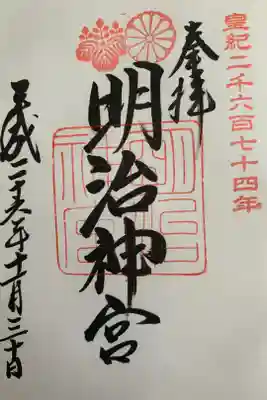 皇紀二千六百七十四年
奉拝
明治神宮
平成二十六年十二月三十日